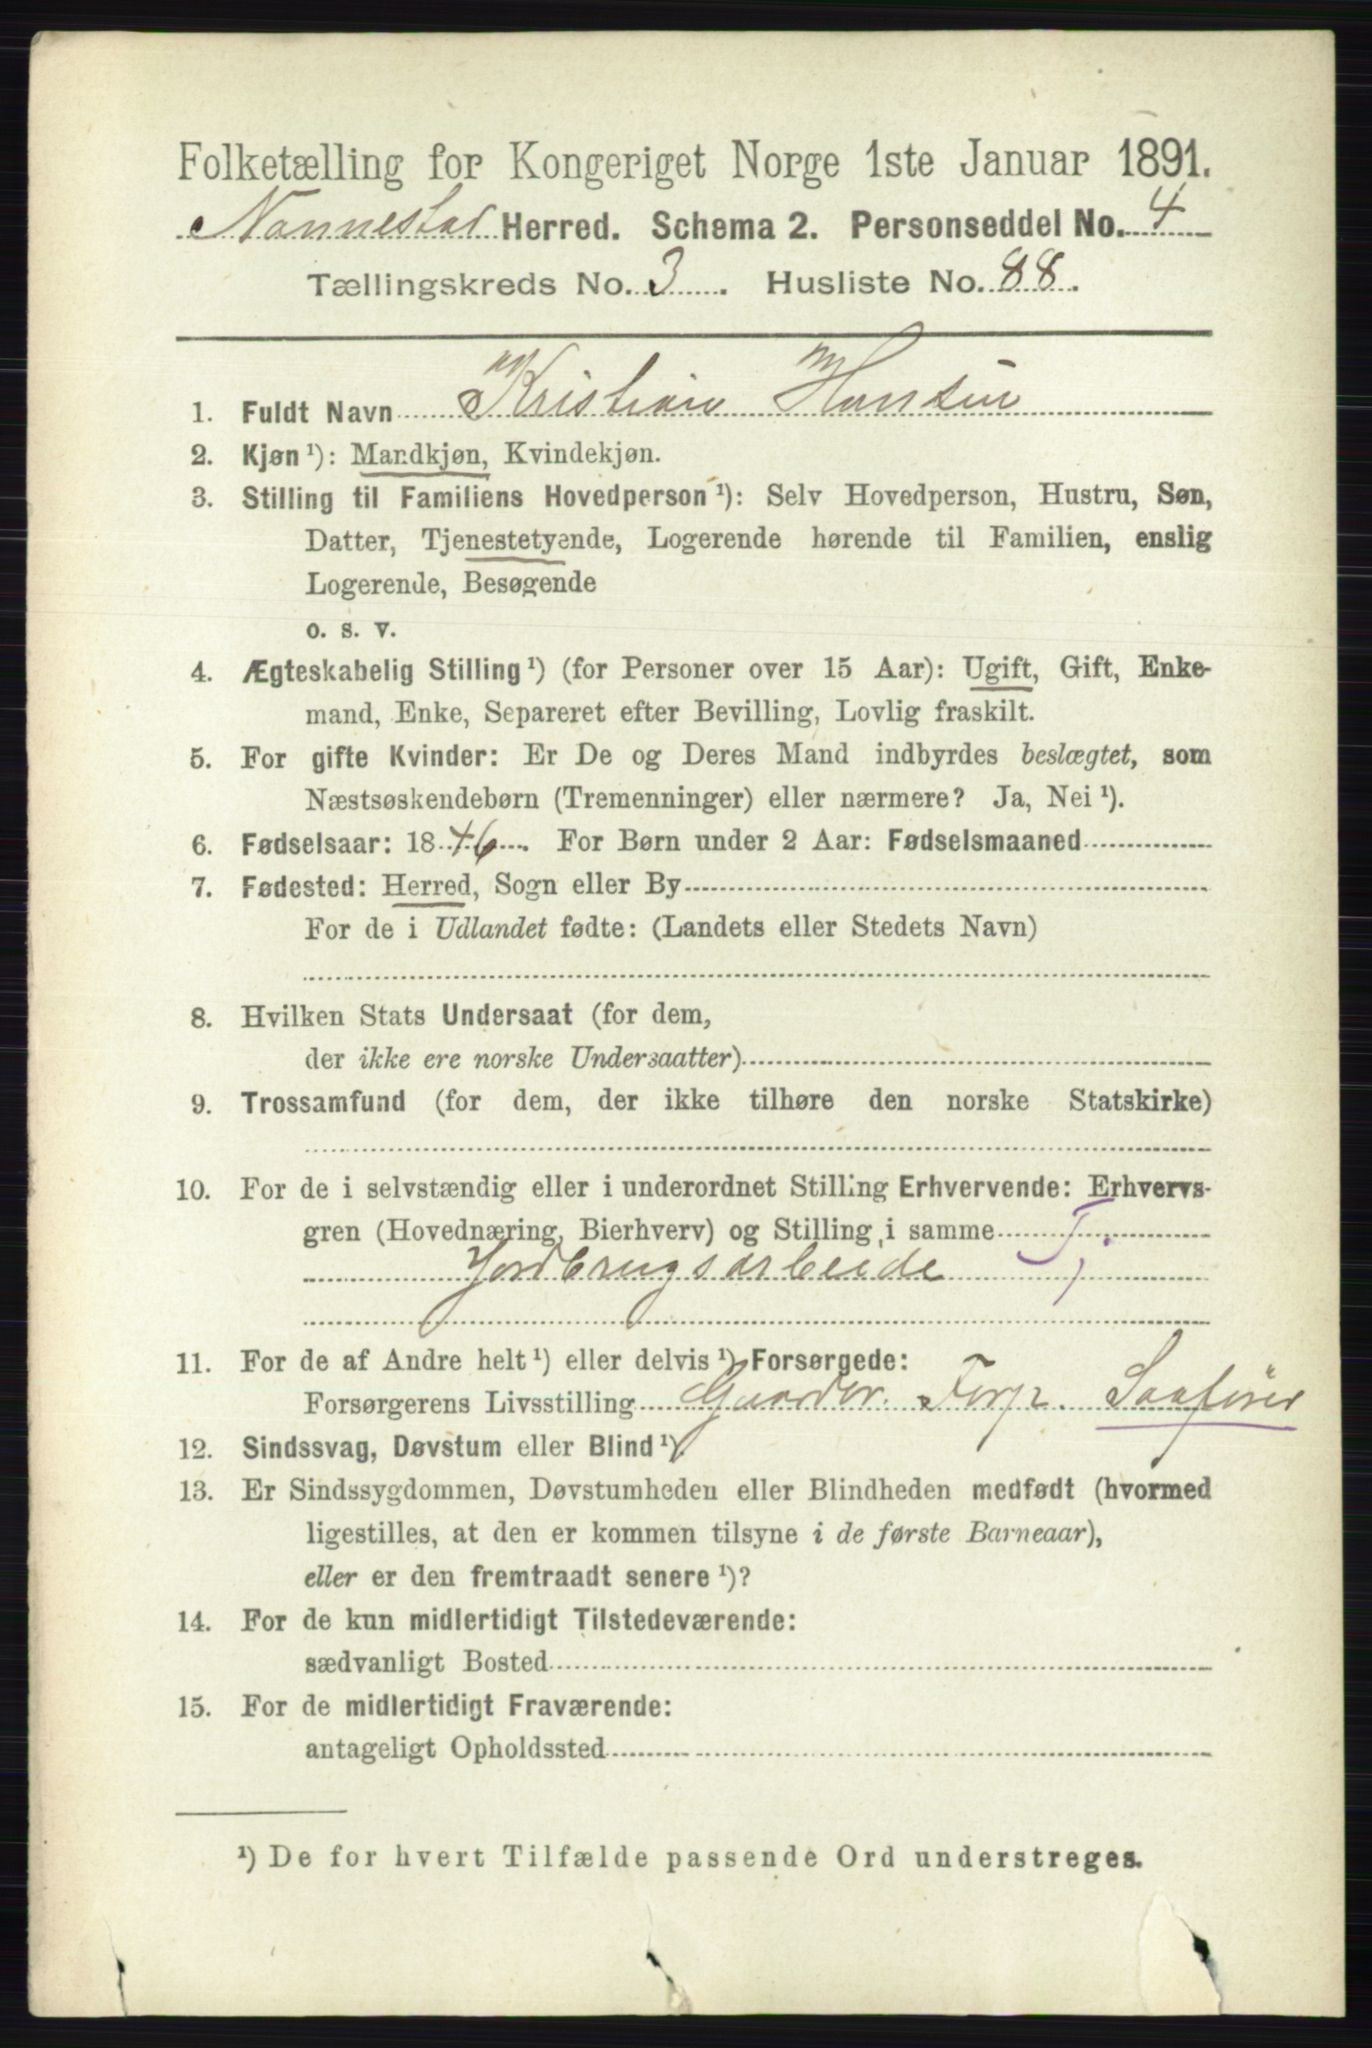 Folketælling for Kongeriget Norge 1ste Januar 1891.
Nannestad Herred. Schema 2. Personseddel No. 4
Tællingskreds No. 3. Husliste No. 88.
1. Fuldt Navn Kristian Hansen
2. Kjøn ¹): Mandkjøn, Kvindekjøn.
3. Stilling til Familiens Hovedperson ¹): Selv Hovedperson, Hustru, Søn,
Datter, Tjenestetyende, Logerende hørende til Familien, enslig
Logerende, Besøgende
o. s. v.
4. Ægteskabelig Stilling ¹) (for Personer over 15 Aar): Ugift, Gift, Enke-
mand, Enke, Separeret efter Bevilling, Lovlig fraskilt.
5. For gifte Kvinder: Er De og Deres Mand indbyrdes beslægtet, som
Næstsøskendebørn (Tremenninger) eller nærmere? Ja, Nei ¹).
6. Fødselsaar: 1846. For Børn under 2 Aar: Fødselsmaaned
7. Fødested: Herred, Sogn eller By
For de i Udlandet fødte: (Landets eller Stedets Navn)
8. Hvilken Stats Undersaat (for dem,
der ikke ere norske Undersaatter)
9. Trossamfund (for dem, der ikke tilhøre den norske Statskirke)
10. For de i selvstændig eller i underordnet Stilling Erhvervende: Erhvervs-
gren (Hovednæring, Bierhverv) og Stilling i samme Tj
Jordbrugsarbeide
11. For de af Andre helt ¹) eller delvis ¹) Forsørgede:
Forsørgerens Livsstilling Gaardbr. Forp.
12. Sindssvag, Døvstum eller Blind ¹).
13. Er Sindssygdommen, Døvstumheden eller Blindheden medfødt (hvormed
ligestilles, at den er kommen tilsyne i de første Barneaar),
eller er den fremtraadt senere ¹)?
14. For de kun midlertidigt Tilstedeværende:
sædvanligt Bosted
15. For de midlertidigt Fraværende:
antageligt Opholdssted
¹) De for hvert Tilfælde passende Ord understreges.